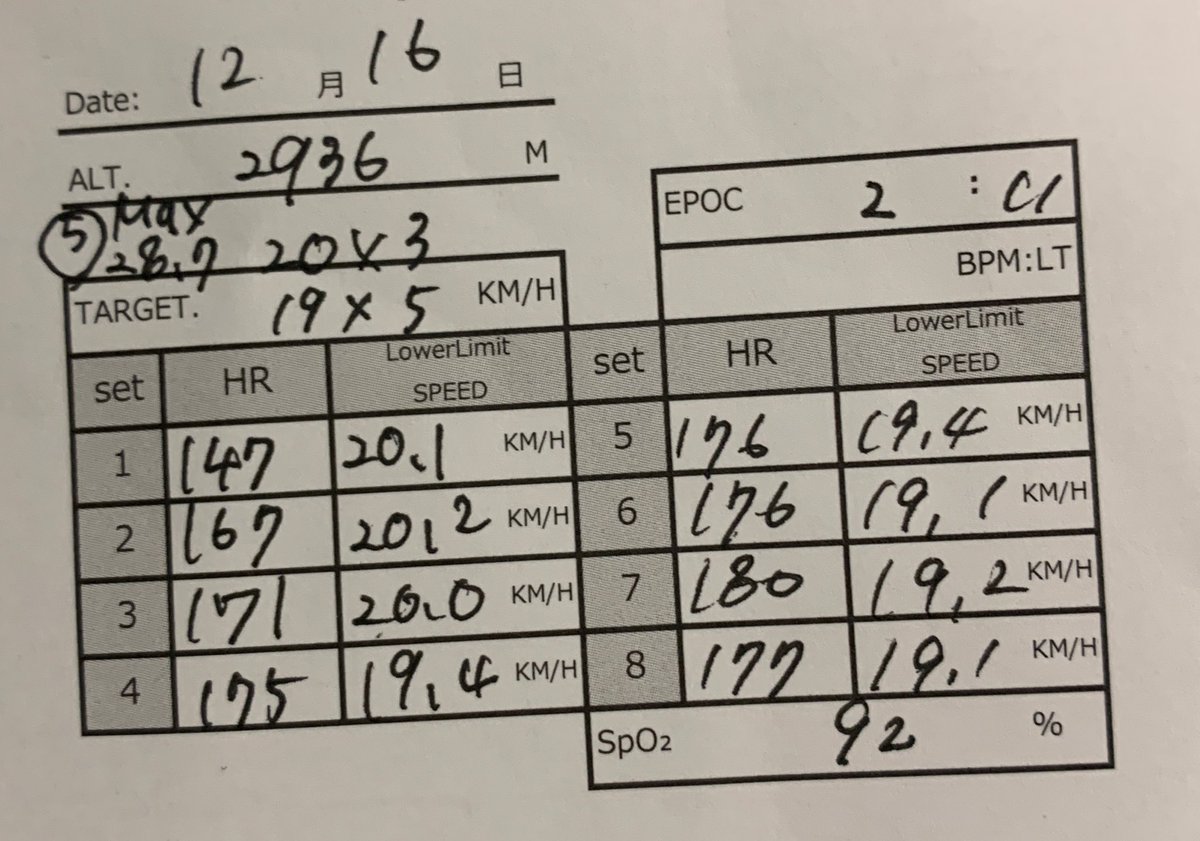 Date: 12 月 16 日
ALT. 2936 M
⑤ Max
28.7 20×3
TARGET. 19×5 KM/H
EPOC 2 :
BPM:LT
set HR LowerLimit SPEED set HR LowerLimit SPEED
1 147 20.1 KM/H 5 176 19.4 KM/H
2 167 20.2 KM/H 6 176 19.1 KM/H
3 171 20.0 KM/H 7 180 19.2 KM/H
4 175 19.4 KM/H 8 177 19.1 KM/H
SpO2 92 %